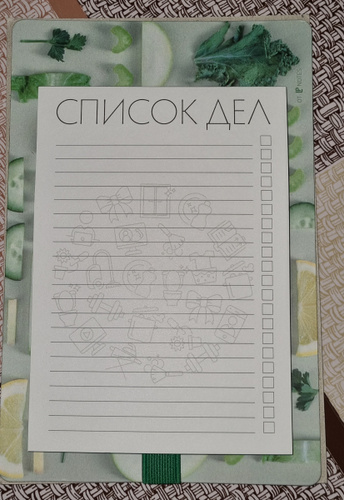 СПИСОК ДЕЛ